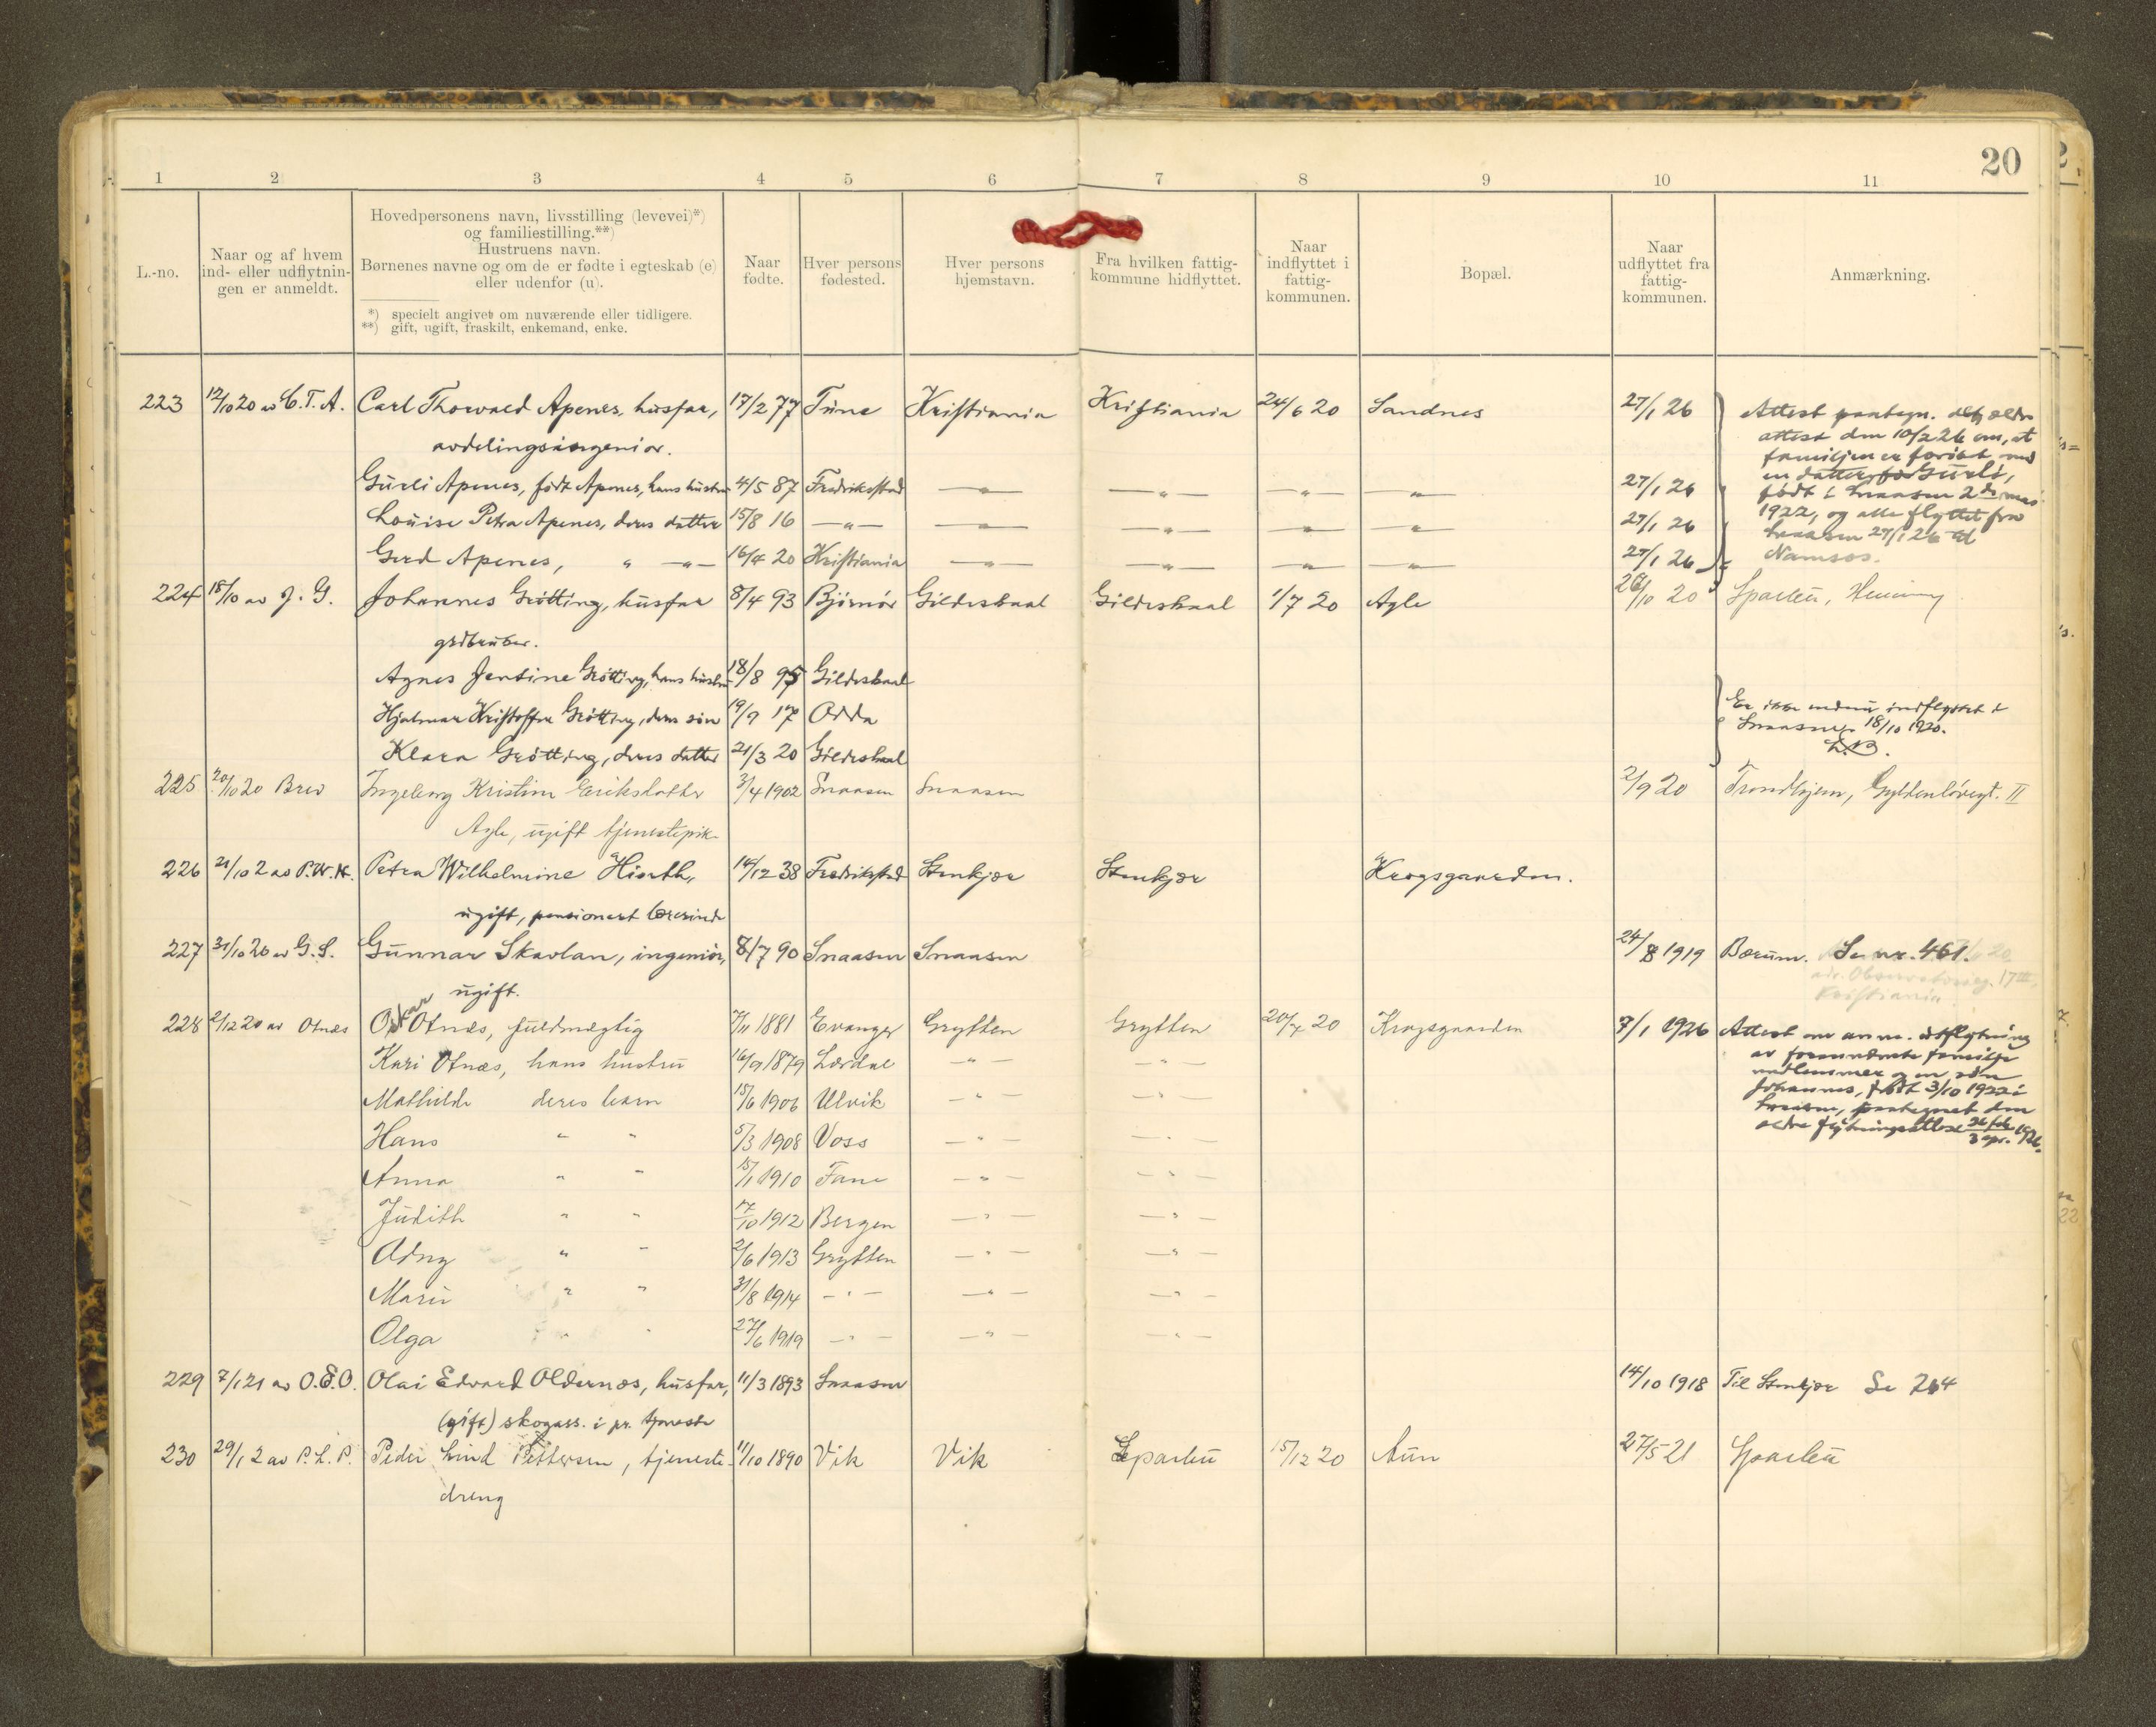 20
1 2 3 4 5 6 7 8 9 10 11
L.-no.
Naar og af hvem
ind- eller udflytnin-
gen er anmeldt.
Hovedpersonens navn, livsstilling (levevei)*)
og familiestilling.**)
Hustruens navn.
Børnenes navne og om de er fødte i egteskab (e)
eller udenfor (u).
*) specielt angivet om nuværende eller tidligere.
**) gift, ugift, fraskilt, enkemand, enke.
Naar
fødte.
Hver persons
fødested.
Hver persons
hjemstavn.
Fra hvilken fattig-
kommune hidflyttet.
Naar
indflyttet i
fattig-
kommunen.
Bopæl.
Naar
udflyttet fra
fattig-
kommunen.
Anmærkning.
223 12/10 20 av C.T.A. Carl Thorvald Apenes, husfar, 17/2 77 Tune Kristiania Kristiania 24/6 20 Sandnes 27/1 26
avdelingsingeniør.
Gurli Apenes, født Apenes, hans hustru 4/5 87 Fredriksstad — " — — " — — " — — " — 27/1 26
Louise Petra Apenes, deres datter 15/8 16 — " — — " — — " — — " — — " — 27/1 26
Gerd Apenes, " — " — 16/4 20 Kristiania — " — — " — — " — — " — 27/1 26
Attest paategn. ældre
attest den 10/2 26 om, at
familjen er forøket med
en datter Gurli,
født i Snaasen 2den mai
1922, og alle flyttet fra
Snaasen 27/1 26 til
Namsos.
224 18/10 av J. G. Johannes Grötting, husfar 8/4 93 Bjørnør Gildeskaal Gildeskaal 1/7 20 Agle 26/10 20 Sparbu, Henning
grdbruker.
Agnes Jentine Grötting, hans hustru 18/8 95 Gildeskaal
Hjalmar Kristoffer Grötting, deres søn 19/9 17 Odda
Klara Grötting, deres datter 21/3 20 Gildeskaal
Er ikke endnu indflyttet i
Snaasen 18/10 1920.
225 20/10 20 Brev Ingeborg Kristine Eriksdatter 3/4 1902 Snaasen Snaasen 2/9 20 Trondhjem, Gyldenløvesgt. II
Agle, ugift tjenestepik
226 21/10 2 av P.W.H. Petra Wilhelmine Hiorth, 14/12 38 Fredriksstad Stenkjær Stenkjær Krogsgaarden.
ugift, pensionert lærerinde
227 31/10 20 av G.S. Gunnar Skavlan, ingeniør, 8/7 90 Snaasen Snaasen 24/8 1919 Bærum. Se nr. 461.
ugift.
17 III,
Kristiania.
228 2/12 20 av Otnæs Oskar Otnæs, fuldmægtig 7/11 1881 Evanger Grytten Grytten 20/7 20 Krogsgaarden 7/1 1926
Kari Otnæs, hans hustru 16/9 1879 Lærdal — " — — " —
Mathilde deres barn 15/6 1906 Ulvik — " — — " —
Hans " " 5/3 1908 Voss — " — — " —
Anna " " 15/1 1910 Fane — " — — " —
Judith " " 17/10 1912 Bergen — " — — " —
Odny " " 2/6 1913 Grytten — " — — " —
Marie " " 31/8 1914 — " — — " — — " —
Olga " " 27/6 1919 — " — — " — — " —
Attest om anm. utflytning
av forannævnte familje
medlemmer og en søn
Johannes, født 3/10 1922 i
Snaasen, paategnet den
ældre flytningsattest 26 feb. 3 apr. 1926.
229 7/1 21 av O.E.O. Olai Edvard Oldernæs, husfar, 11/3 1893 Snaasen 14/10 1918 Til Stenkjær Se 264
(gift) skogass. i pr. tjeneste
230 29/1 2 av P.L.P. Peder Lind Pettersen, tjeneste- 11/10 1890 Vik Vik Sparbu 15/12 20 Aun 27/5 21 Sparbu
dreng